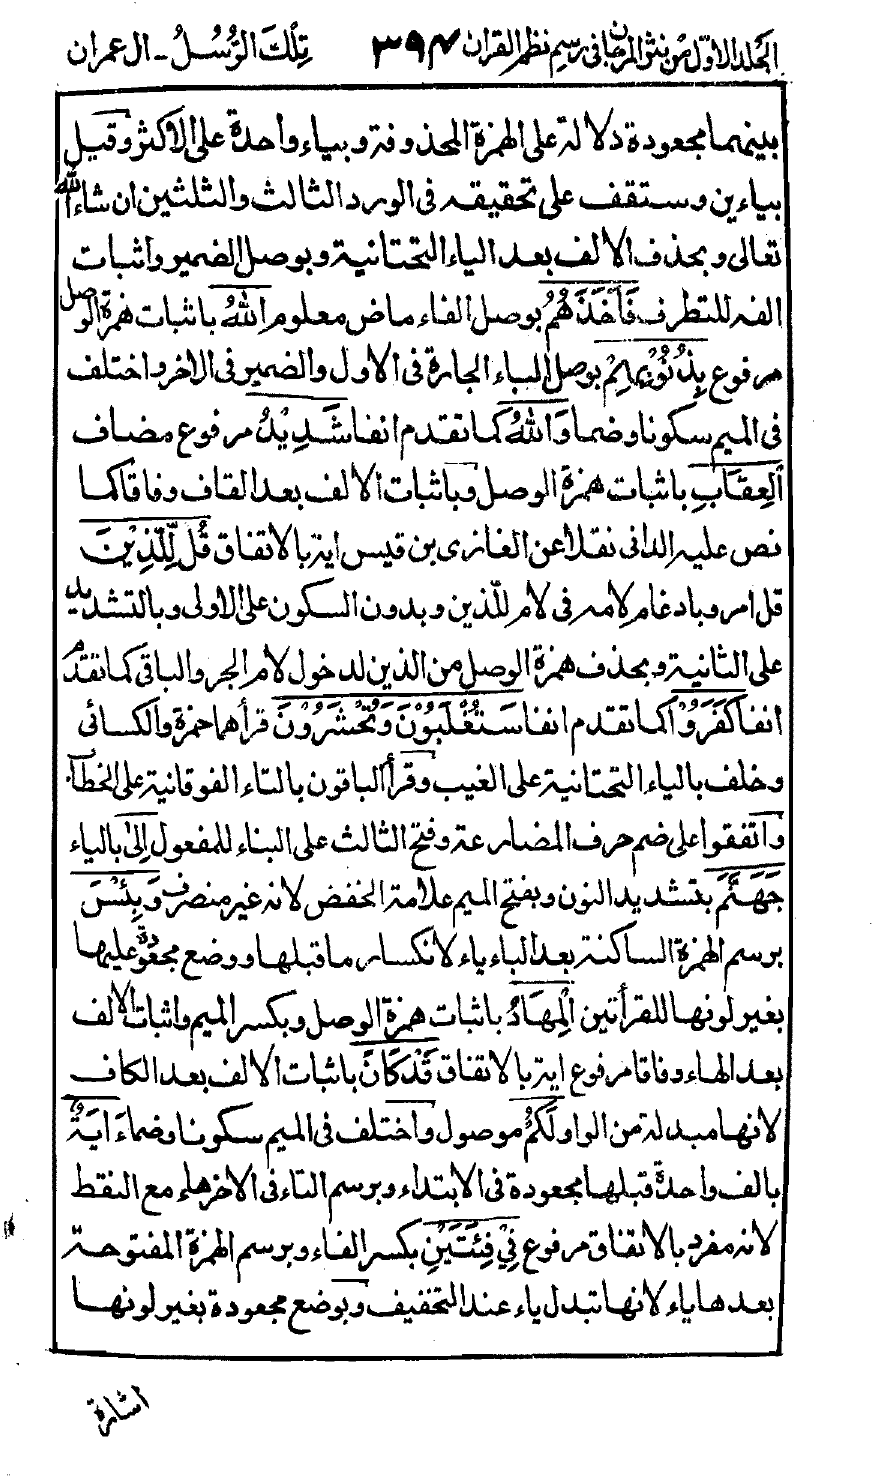 الجلد الاول من نثر المرجان فى رسم نظم القران ٣٩٧ تِلْكَ الرُّسُلُ ـ ال عمران
بينهما مجعودة دلالة على الهمزة المحذوفة وبياء واحدة على الاكثر وقيل
بياءين وستقف على تحقيقه فى الورد الثالث والثلثين ان شاء الله
تعالى وبحذف الالف بعد الياء التحتانية وبوصل الضمير واثبات
الفه للتطرف فَاَخَذَهُمُ بوصل الفاء ماض معلوم اللهُ باثبات همزة الوصل
مرفوع بِذُنُوْبِهِمْ بوصل الباء الجارة فى الاول والضمير فى الاخر واختلف
فى الميم سكونا وضما وَاللهُ كما تقدم انفا شَدِيْدُ مرفوع مضاف
الْعِقَابِ باثبات همزة الوصل وباثبات الالف بعد القاف وفاقا كما
نص عليه الدانى نقلا عن الغازى بن قيس اية بالاتفاق قُلْ لِّلَّذِيْنَ
قل امر وبادغام لامه فى لام للذين وبدون السكون على الاولى وبالتشديد
على الثانية وبحذف همزة الوصل من الذين لدخول لام الجر والباقى كما تقدم
انفا كَفَرُوْا كما تقدم انفا سَتُغْلَبُوْنَ وَتُحْشَرُوْنَ قرأهما حمزة والكسائى
وخلف بالياء التحتانية على الغيب وقرأ الباقون بالتاء الفوقانية على الخطاب
واتفقوا على ضم حرف المضارعة وفتح الثالث على البناء للمفعول اِلٰى بالياء
جَهَنَّمَ بتشديد النون وبفتح الميم علامة الخفض لانه غير منصرف وَبِئْسَ
برسم الهمزة الساكنة بعد الباء ياء لانكسار ما قبلها ووضع مجعودة عليها
بغير لونها للقرأتين الْمِهَادُ باثبات همزة الوصل وبكسر الميم واثبات الالف
بعد الهاء وفاقا مرفوع اية بالاتفاق قَدْ كَانَ باثبات الالف بعد الكاف
لانها مبدلة من الواو لَكُمْ موصول واختلف فى الميم سكونا وضما ءَايَةٌ
بالف واحدة قبلها مجعودة فى الابتداء وبرسم التاء فى الاخر هاء مع النقط
لانه مفرد بالاتفاق مرفوع فِىْ فِئَتَيْنِ بكسر الفاء وبرسم الهمزة المفتوحة
بعدها ياء لانها تبدل ياء عند التخفيف وبوضع مجعودة بغير لونها
اشارة